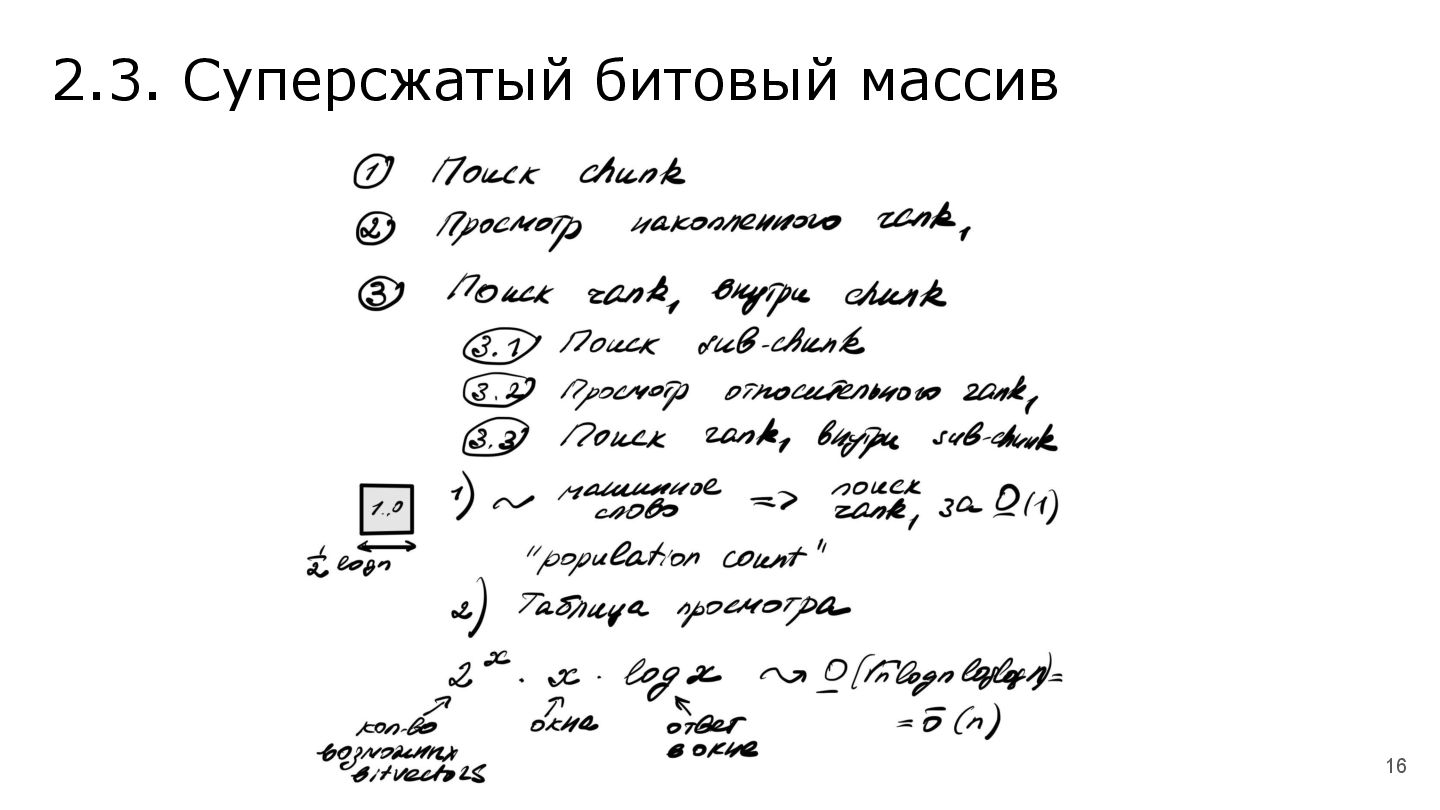 2.3. Суперсжатый битовый массив
① Поиск chunk
② Просмотр накопленного rank₁
③ Поиск rank₁ внутри chunk
3.1 Поиск sub-chunk
3.2 Просмотр относительного rank₁
3.3 Поиск rank₁ внутри sub-chunk
1..0
½ logn
1) ~ машинное слово => поиск rank₁ за O(1)
"population count"
2) Таблица просмотра
2ˣ · x · log x ⇝ O(√n logn loglogn) =
= ō(n)
кол-во возможных bitvectors
окна
ответ в окне
16